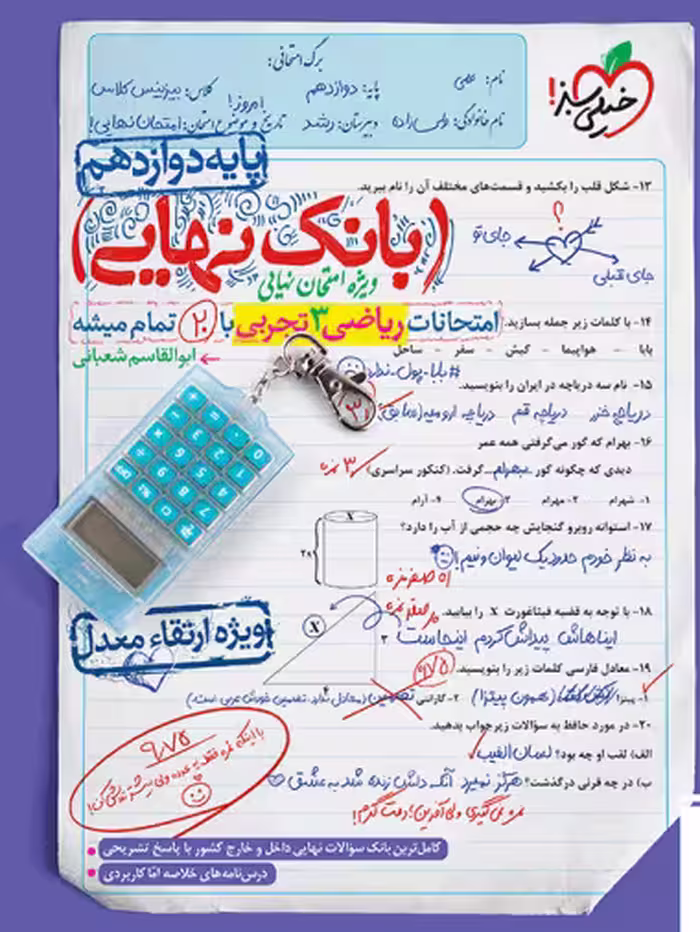 برگ امتحانی:
نام: علمی پایه: دوازدهم کلاس: بیزینس کلاس
امروز!
نام خانوادگی: دبیرستان: رشد تاریخ و موضوع امتحان: امتحان نهایی!
خیلی سبز!
پایه دوازدهم
۱۳- شکل قلب را بکشید و قسمت‌های مختلف آن را نام ببرید.
؟
جای تو
جای قبلی
(بانک نهایی)
ویژه امتحان نهایی
۱۴- با کلمات زیر جمله بسازید.
امتحانات ریاضی ۳ تجربی با ۲۰ تمام میشه
بابا - هواپیما - کیش - سفر - ساحل
ابوالقاسم شعبانی
#بابا-پول-نداره
۱۵- نام سه دریاچه در ایران را بنویسید.
دریاچه خزر دریاچه قم دریاچه ارومیه (سابق)
۱۶- بهرام که گور می‌گرفتی همه عمر
دیدی که چگونه گور بهرام گرفت. (کنکور سراسری)
۱- شهرام ۲- مهرام ۳- بهرام ۴- آرام
۱۷- استوانه روبرو گنجایش چه حجمی از آب را دارد؟
X
به نظر خودم حدود یک لیوان و نیم!
۱۸- با توجه به قضیه فیثاغورث X را بیابید.
X
۳
۴
ایناهاش پیداش کردم اینجاست
ویژه ارتقاء معدل
۱۹- معادل فارسی کلمات زیر را بنویسید.
۹/۷۵
۱- پیتزا (همون پیتزا) ۲- گارانتی تضمین (معادل ندارد. تضمین خودش عربی است.)
۲۰- در مورد حافظ به سؤالات زیر جواب بدهید.
الف) لقب او چه بود؟ لسان الغیب
ب) در چه قرنی درگذشت؟ هرگز نمیرد آنکه دلش زنده شد به عشق
۹/۷۵
نمره نمی‌گیری ولی آفرین! دقت کردم!
کامل‌ترین بانک سؤالات نهایی داخل و خارج کشور با پاسخ تشریحی
درس‌نامه‌های خلاصه اما کاربردی